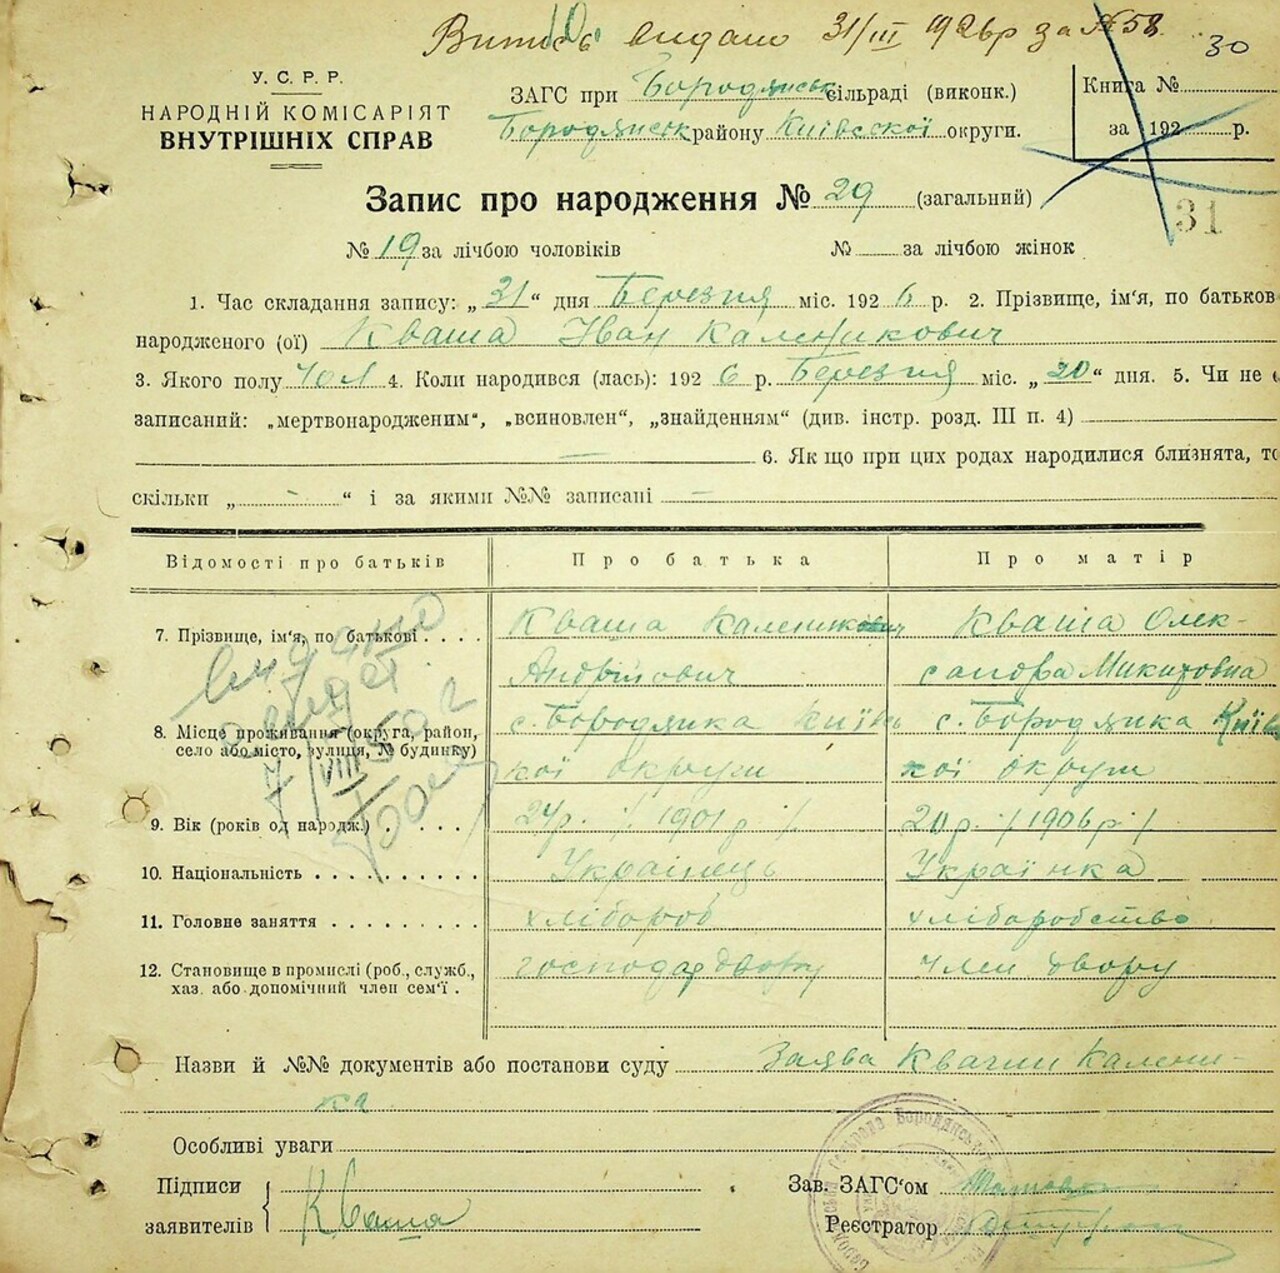 Витись видано 31/III 1926р за №58
30
У. С. Р. Р.
НАРОДНІЙ КОМІСАРІЯТ
ВНУТРІШНІХ СПРАВ
ЗАГС при Бородянськ сільраді (виконк.)
Бородянськ району Київської округи.
Книга №
за 192 р.
Запис про народження № 29 (загальний)
31
№ 19 за лічбою чоловіків № за лічбою жінок
1. Час складання запису: „ 31 “ дня Березня міс. 192 6 р. 2. Прізвище, ім'я, по батьков
народженого (ої) Кваша Іван Каленикович
3. Якого полу чол 4. Коли народився (лась): 192 6 р. Березня міс. „ 20 “ дня. 5. Чи не
записаний: „мертвонародженим“, „всиновлен“, „знайденням“ (див. інстр. розд. III п. 4)
6. Як що при цих родах народилися близнята, то
скільки „ - “ і за якими №№ записані —
Відомості про батьків Про батька Про матір
7. Прізвище, ім'я, по батькові . . . . Кваша Каленикович Кваша Олек-
Андрійович сандра Микитовна
8. Місце проживання (округа, район, с. Бородянка Київ с. Бородянка Київ
село або місто, вулиця, № будинку)
кої округи кої округи
видано
7/VIII 50 г
9. Вік (років од народж.) . . . . . 24р. /1901р/ 20р. /1906р/
10. Національність . . . . . . . . . . Українець Українка
11. Головне заняття . . . . . . . . . хлібороб хліборобство
12. Становище в промислі (роб., служб., господар двору член двору
хаз. або допомічний член сем'ї .
Назви й №№ документів або постанови суду Заява Кваши Калени-
ка
Особливі уваги
Підписи
заявителів Кваша
Зав. ЗАГС'ом
Реєстратор